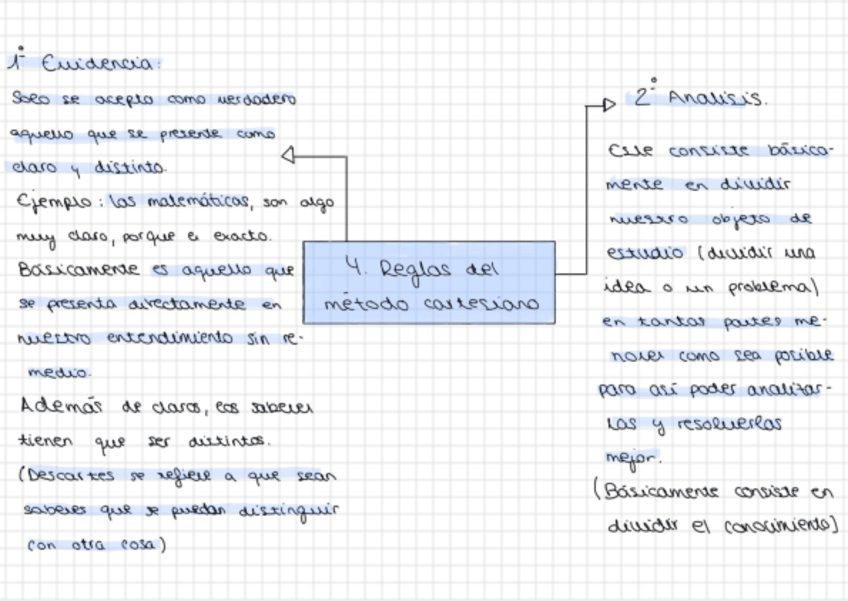 1º Evidencia:
Solo se acepta como verdadero
aquello que se presente como
claro y distinto.
Ejemplo: las matemáticas, son algo
muy claro, porque es exacto.
Básicamente es aquello que
se presenta directamente en
nuestro entendimiento sin re-
medio.
Además de claros, los saberes
tienen que ser distintos.
(Descartes se refiere a que sean
saberes que se puedan distinguir
con otra cosa)
4. Reglas del
método cartesiano
2º Analisis.
Este consiste básica-
mente en dividir
nuestro objeto de
estudio (dividir una
idea o un problema)
en tantas partes me-
nores como sea posible
para así poder analizar-
las y resolverlas
mejor.
(Básicamente consiste en
dividir el conocimiento)